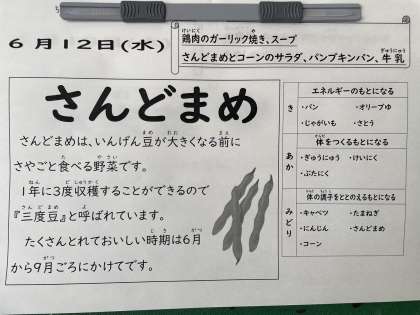 6月12日(水)
鶏肉のガーリック焼き、スープ
さんどまめとコーンのサラダ、パンプキンパン、牛乳
さんどまめ
さんどまめは、いんげん豆が大きくなる前に
さやごと食べる野菜です。
1年に3度収穫することができるので
『三度豆』と呼ばれています。
たくさんとれておいしい時期は6月
から9月ごろにかけてです。
き
エネルギーのもとになる
・パン ・オリーブゆ
・じゃがいも ・さとう
あか
体をつくるもとになる
・ぎゅうにゅう ・けいにく
・ぶたにく
みどり
体の調子をととのえるもとになる
・キャベツ ・たまねぎ
・にんじん ・さんどまめ
・コーン